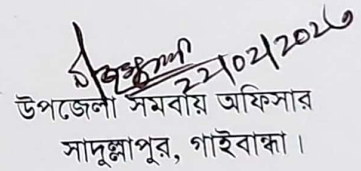 22/02/2026
উপজেলা সমবায় অফিসার
সাদুল্লাপুর, গাইবান্ধা।